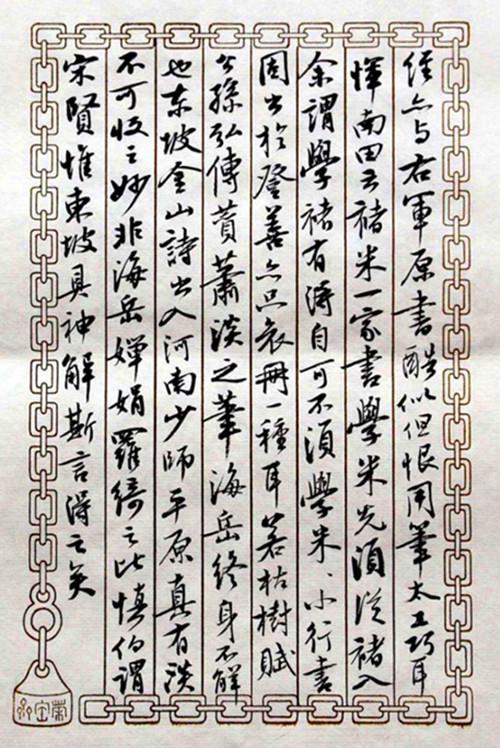 経亦与右軍原書酷似但恨用筆太工巧耳
惲南田云褚米一家書學米先須從褚入
余謂學褚有得自可不須學米米小行書
固出於登善亦只哀冊一種耳若枯樹賦
公孫弘傳贊蕭淡之筆海岳終身不解
也東坡金山詩出入河南少師平原真有淡
不可收之妙非海岳嬋娟羅綺之比慎伯謂
宋賢惟東坡具神解斯言得之矣
榮寶